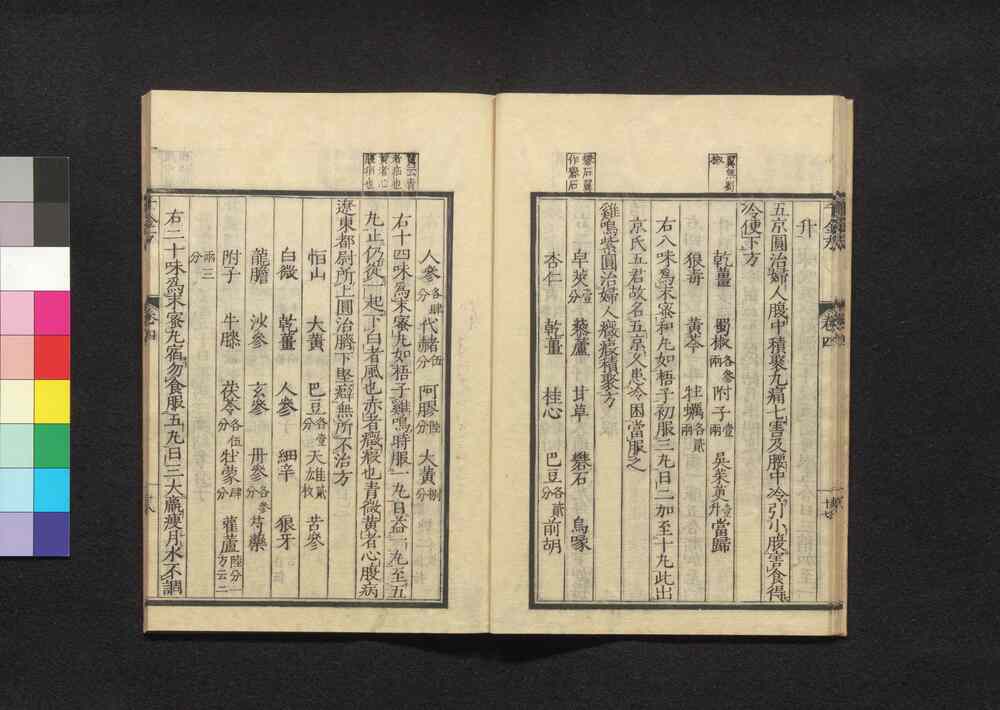 升
五京圓治婦人腹中積聚九痛七害及腰中冷引小腹害食得
冷便下方
乾薑 蜀椒各參兩 附子壹兩 吳茱萸壹升 當歸
狼毒 黃芩 牡蠣各貳兩
右八味爲末蜜和丸如梧子初服三丸日二加至十丸此出
京氏五君故名五京久患冷困當服之
雞鳴紫圓治婦人癥瘕積聚方
皂莢壹分 藜蘆 甘草 礬石 烏喙
杏仁 乾薑 桂心 巴豆各貳分 前胡
礬石翼
作礜石
卷四
人參各肆分 代赭伍分 阿膠陸分 大黃捌分
右十四味爲末蜜丸如梧子雞鳴時服一丸日益一丸至五
丸止仍從一起下白者風也赤者癥瘕也青微黃者心腹病
遼東都尉所上圓治臍下堅癖無所不治方
恒山 大黃 巴豆各壹分 天雄貳枚 苦參
白薇 乾薑 人參 細辛 狼牙
龍膽 沙參 玄參 丹參各參分 芍藥
附子 牛膝 茯苓各伍分 牡蒙肆分 雚蘆陸分一方云二
兩三分
右二十味爲末蜜丸宿勿食服五丸日三大羸瘦月水不調